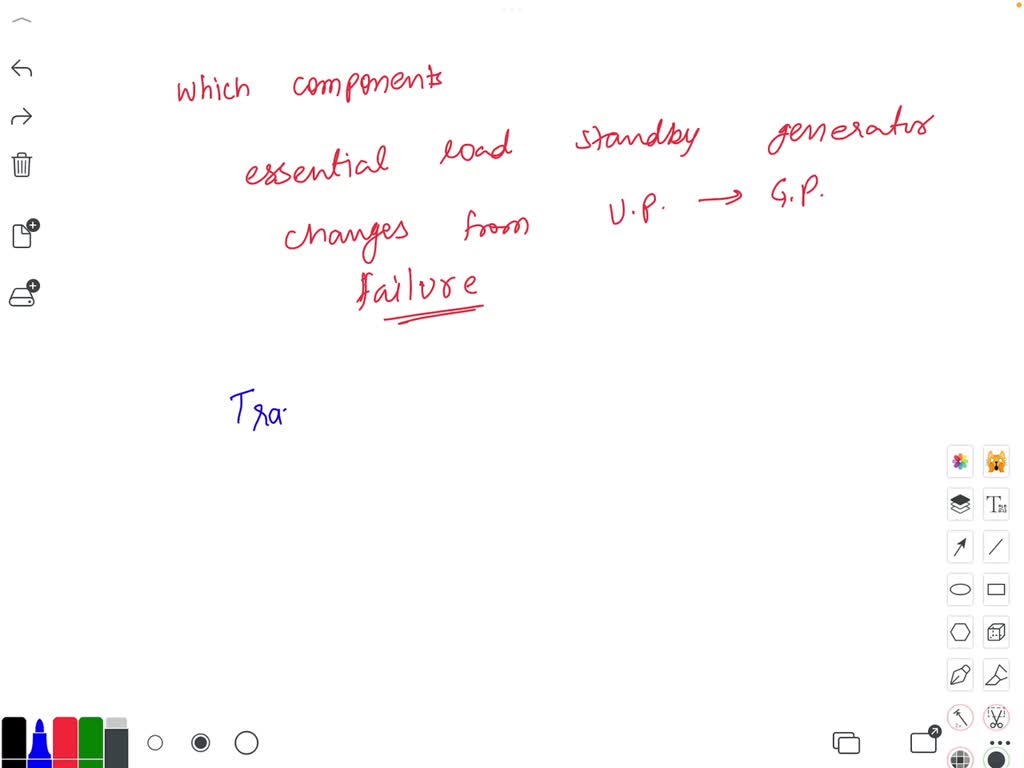 which components
essential load standby generator
changes from U.P. → G.P.
failure
Tra